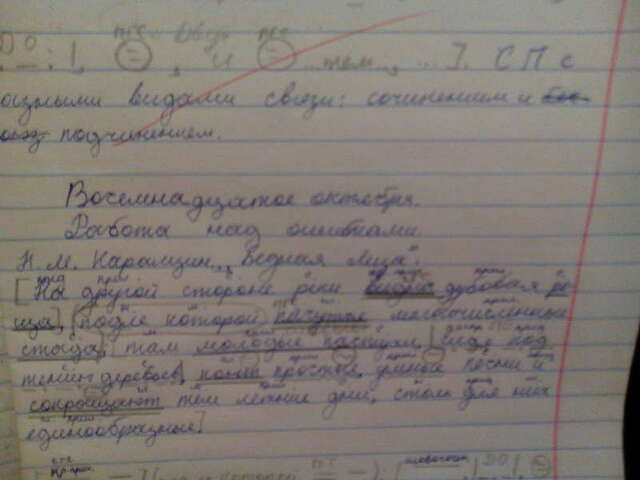 ДО
, и ... тем..., ...]. СПс
разными видами связи: сочинением и бес-
подчинением.
Восемнадцатое октября.
Работа над ошибками.
Н. М. Карамзин „Бедная Лиза".
[На другой стороне реки видна дубовая ро
ща], (подле которой пасутся многочисленные
стада); там молодые пастухи, сидя под
тению деревьев, поют простые, унылые песни и
сокращают тем летние дни, столь для них
единообразные]